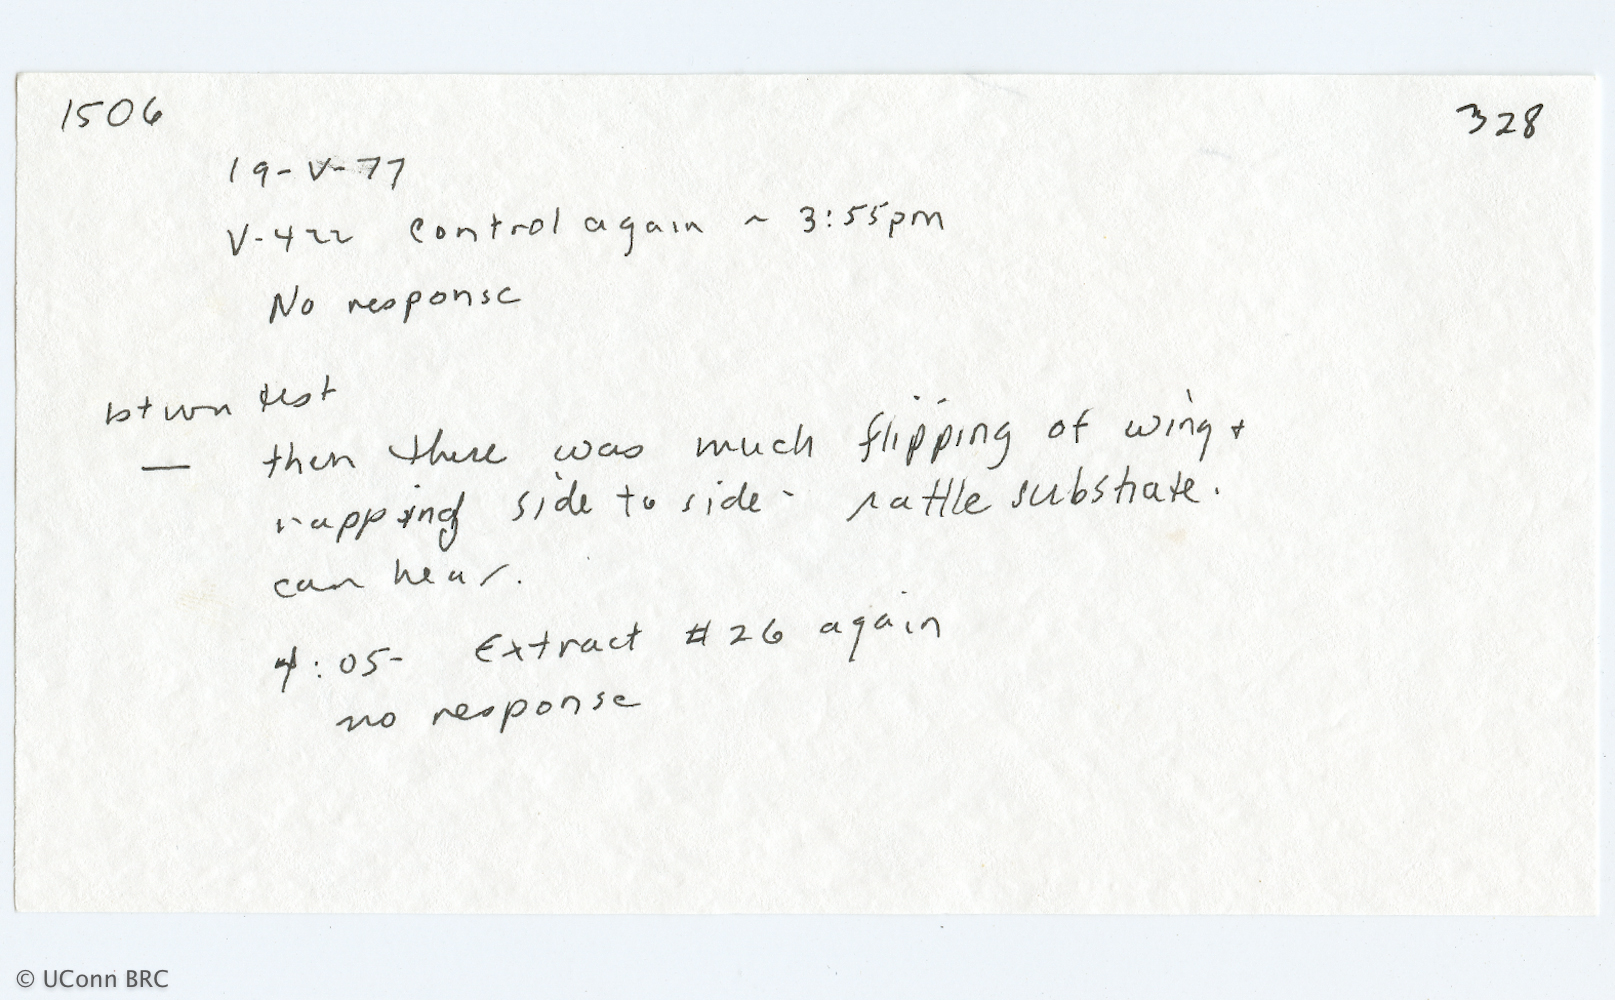 1506
328
19-V-77
V-422 Control again ~ 3:55pm
No response
btwn test
— then there was much flipping of wing +
rapping side to side - rattle substrate.
can hear.
4:05- Extract #26 again
no response
© UConn BRC